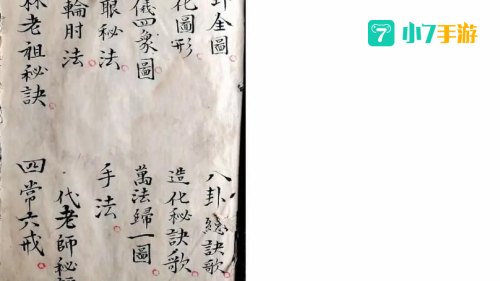 卦全圖
化圖形
儀四象圖
眼秘法
輪肘法
林老祖秘訣
八卦總訣歌
造化秘訣歌
萬法歸一圖
手法
代老師秘
四常六戒
7 小7手游